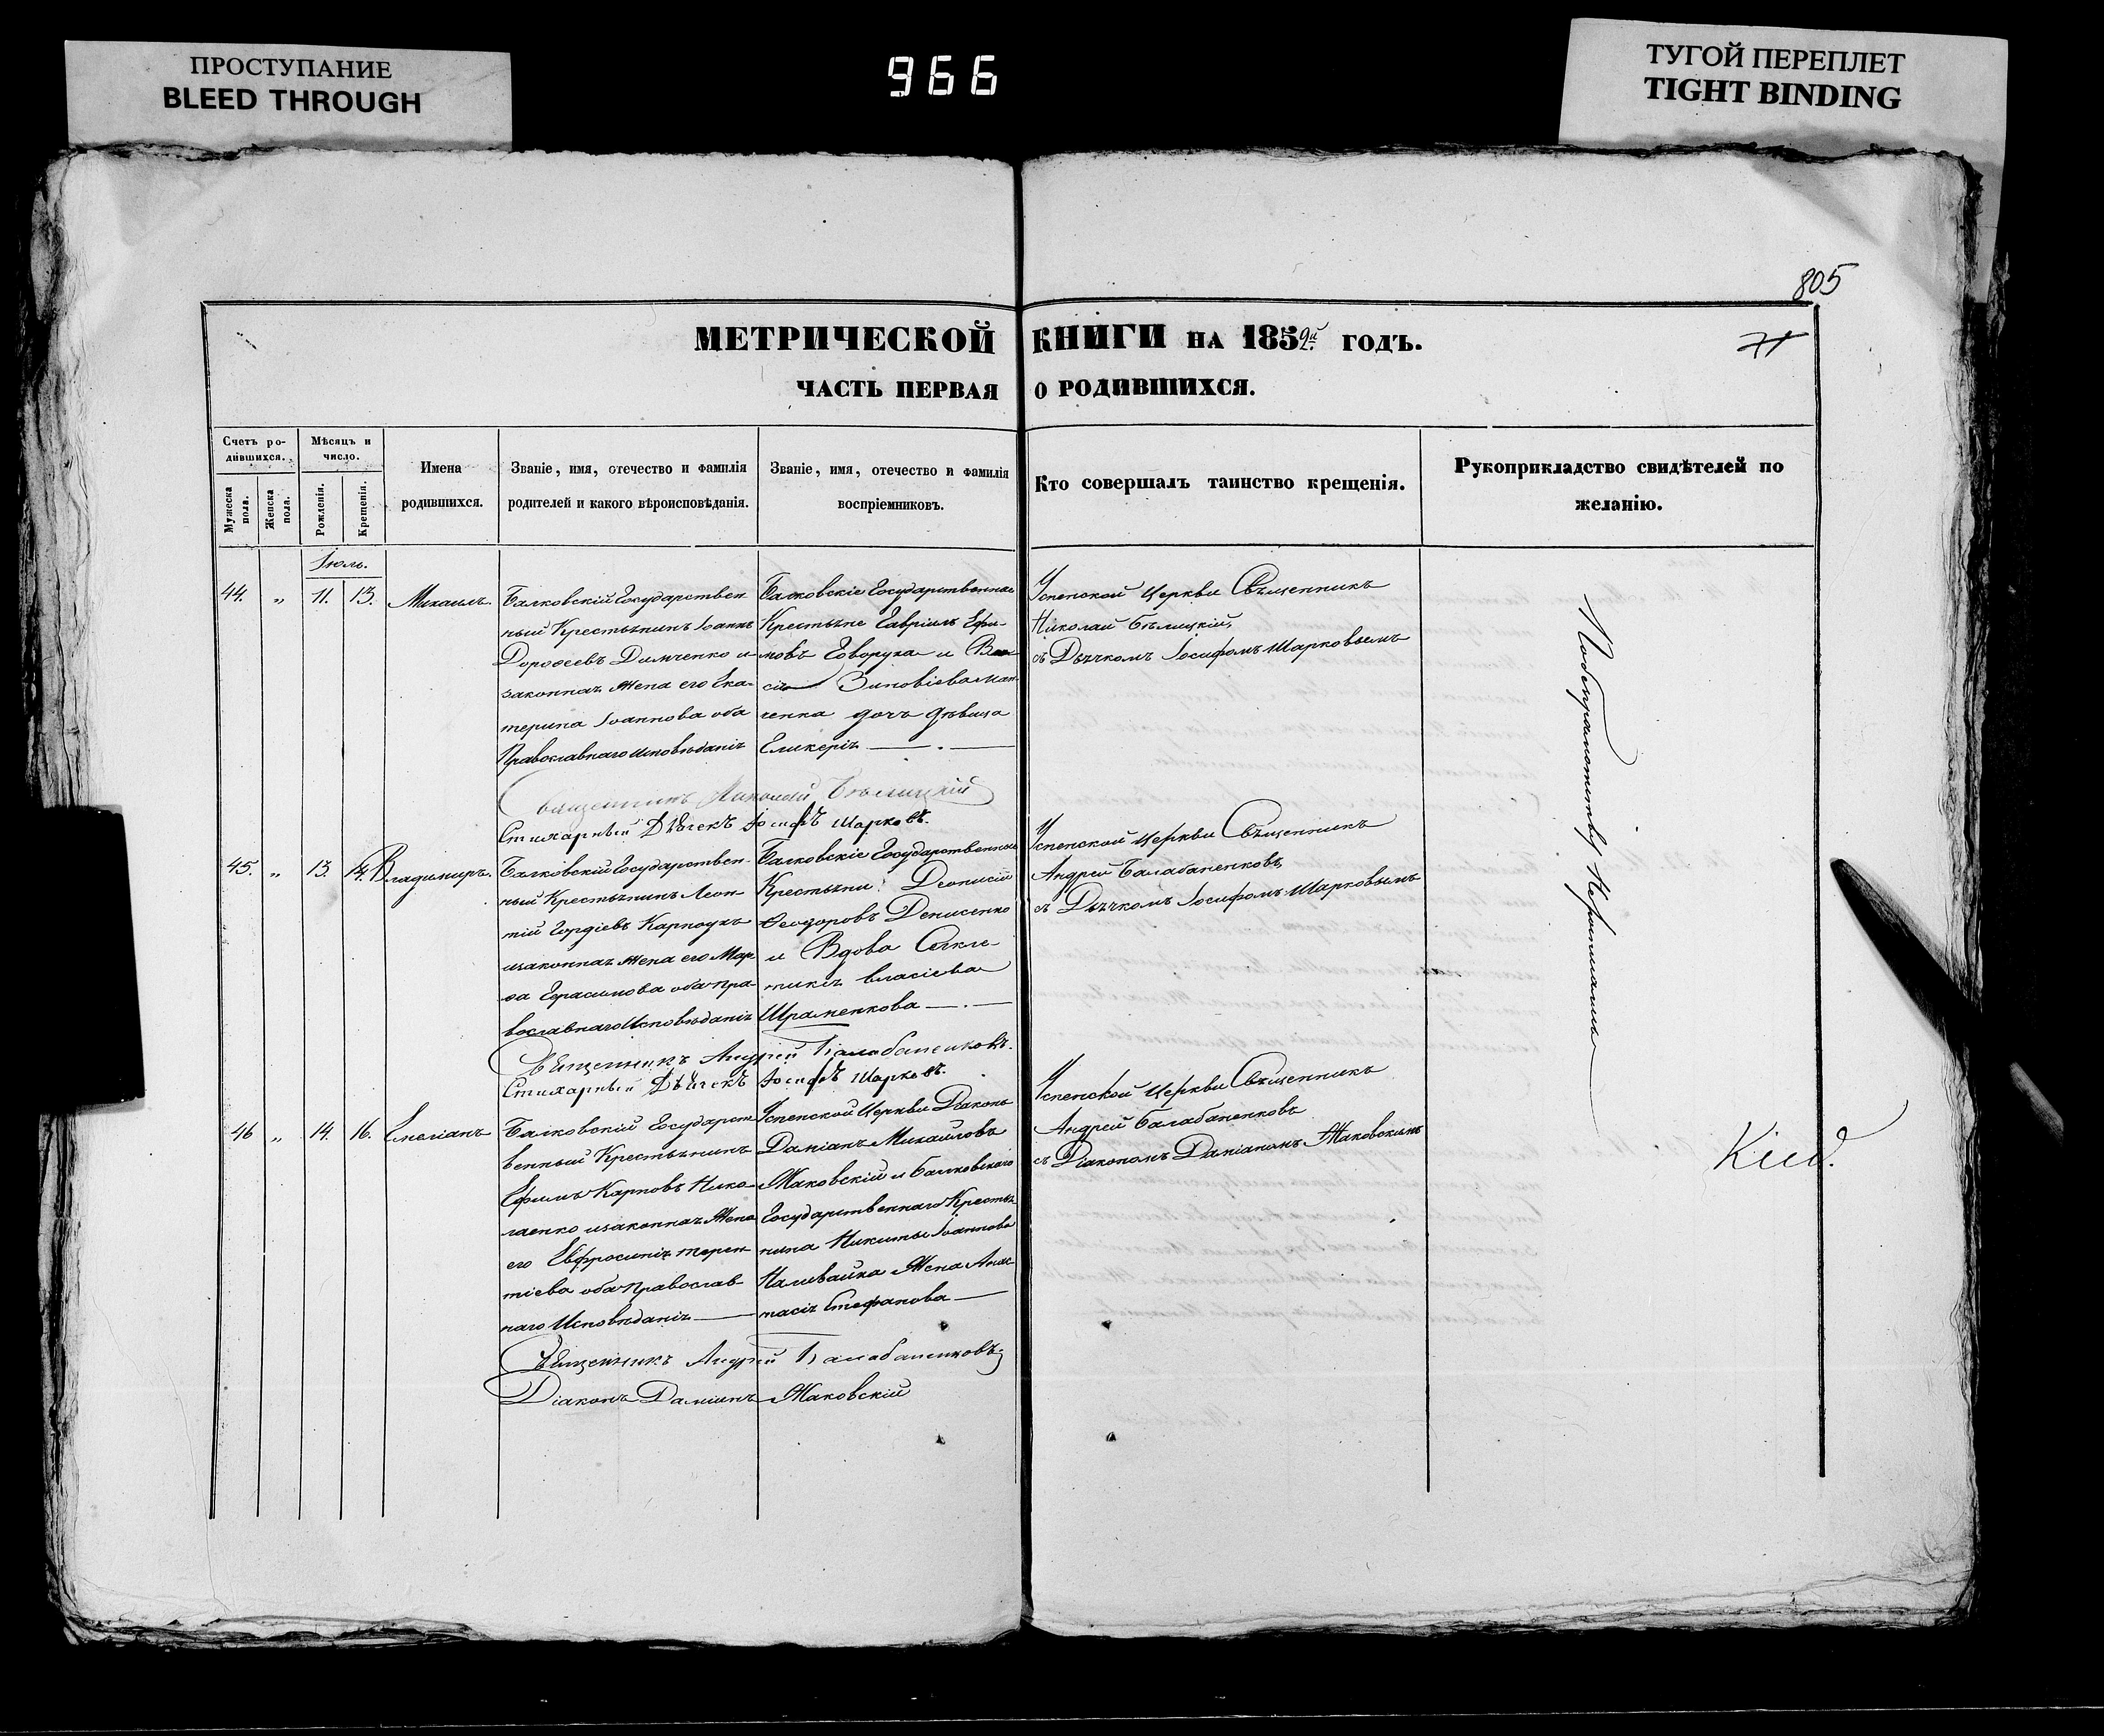 ПРОСТУПАНИЕ
BLEED THROUGH
966
ТУГОЙ ПЕРЕПЛЕТ
TIGHT BINDING
805
МЕТРИЧЕСКОЙ КНИГИ НА 1852й ГОДЪ.
71
ЧАСТЬ ПЕРВАЯ О РОДИВШИХСЯ.
Счетъ ро-
дившихся.
Мужеска
пола.
Женска
пола.
Мѣсяцъ и
число.
Рожденія.
Крещенія.
Имена
родившихся.
Званіе, имя, отечество и фамилія
родителей и какого вѣроисповѣданія.
Званіе, имя, отечество и фамилія
воспріемниковъ.
Кто совершалъ таинство крещенія.
Рукоприкладство свидѣтелей по
желанію.
Іюль.
44. „ 11. 13. Михаилъ.
Балковскій Государствен
ный Крестьянинъ Іоаннъ
Дороѳеевъ Димченко и
законная Жена его Ека-
терина Іоаннова оба
Православнаго Исповѣданія
Балковскіе Государственные
Крестьяне Гавріилъ Ефи-
мовъ Говоруха и
Зиновіева
дочь дѣвица
Гликерія
Успенской Церкви Священникъ
Николай Бѣлицкій,
съ Дьячкомъ Іосифомъ Шарковымъ
Священникъ Николай Бѣлицкій
Стихарный Дьячекъ Іосифъ Шарковъ.
45. „ 13. 14. Владимиръ.
Балковскій Государствен-
ный Крестьянинъ Леон-
тій Гордіевъ Карпоухъ
изаконная Жена его Мар
ѳа Герасимова оба Пра-
вославнаго Исповѣданія
Балковскіе Государственные
Крестьяни: Діонисій
Ѳеодоровъ Денисенко
и Вдова Синкли-
тикія Власіева
Шраменкова
Успенской Церкви Священникъ
Андрей Балабаненковъ,
съ Дьячкомъ Іосифомъ Шарковымъ
Священникъ Андрей Балабаненковъ.
Стихарный Дьячекъ Іосифъ Шарковъ.
46 „ 14. 16. Емеліанъ
Балковскій Государст
венный Крестьянинъ
Ефимъ Карповъ Нико-
лаенко изаконная Жена
его Евфросинія Терен-
тіева оба Православ-
наго Исповѣданія
Успенской Церкви Діаконъ
Даміанъ Михаиловъ
Жаковскій и Балковскаго
Государственнаго Крестья
нина Никиты Іоаннова
Наливайка Жена Анас-
тасія Стефанова
Успенской Церкви Священникъ
Андрей Балабаненковъ
съ Діакономъ Даміаномъ Жаковскимъ
Священникъ Андрей Балабаненковъ
Діаконъ Даміанъ Жаковскій